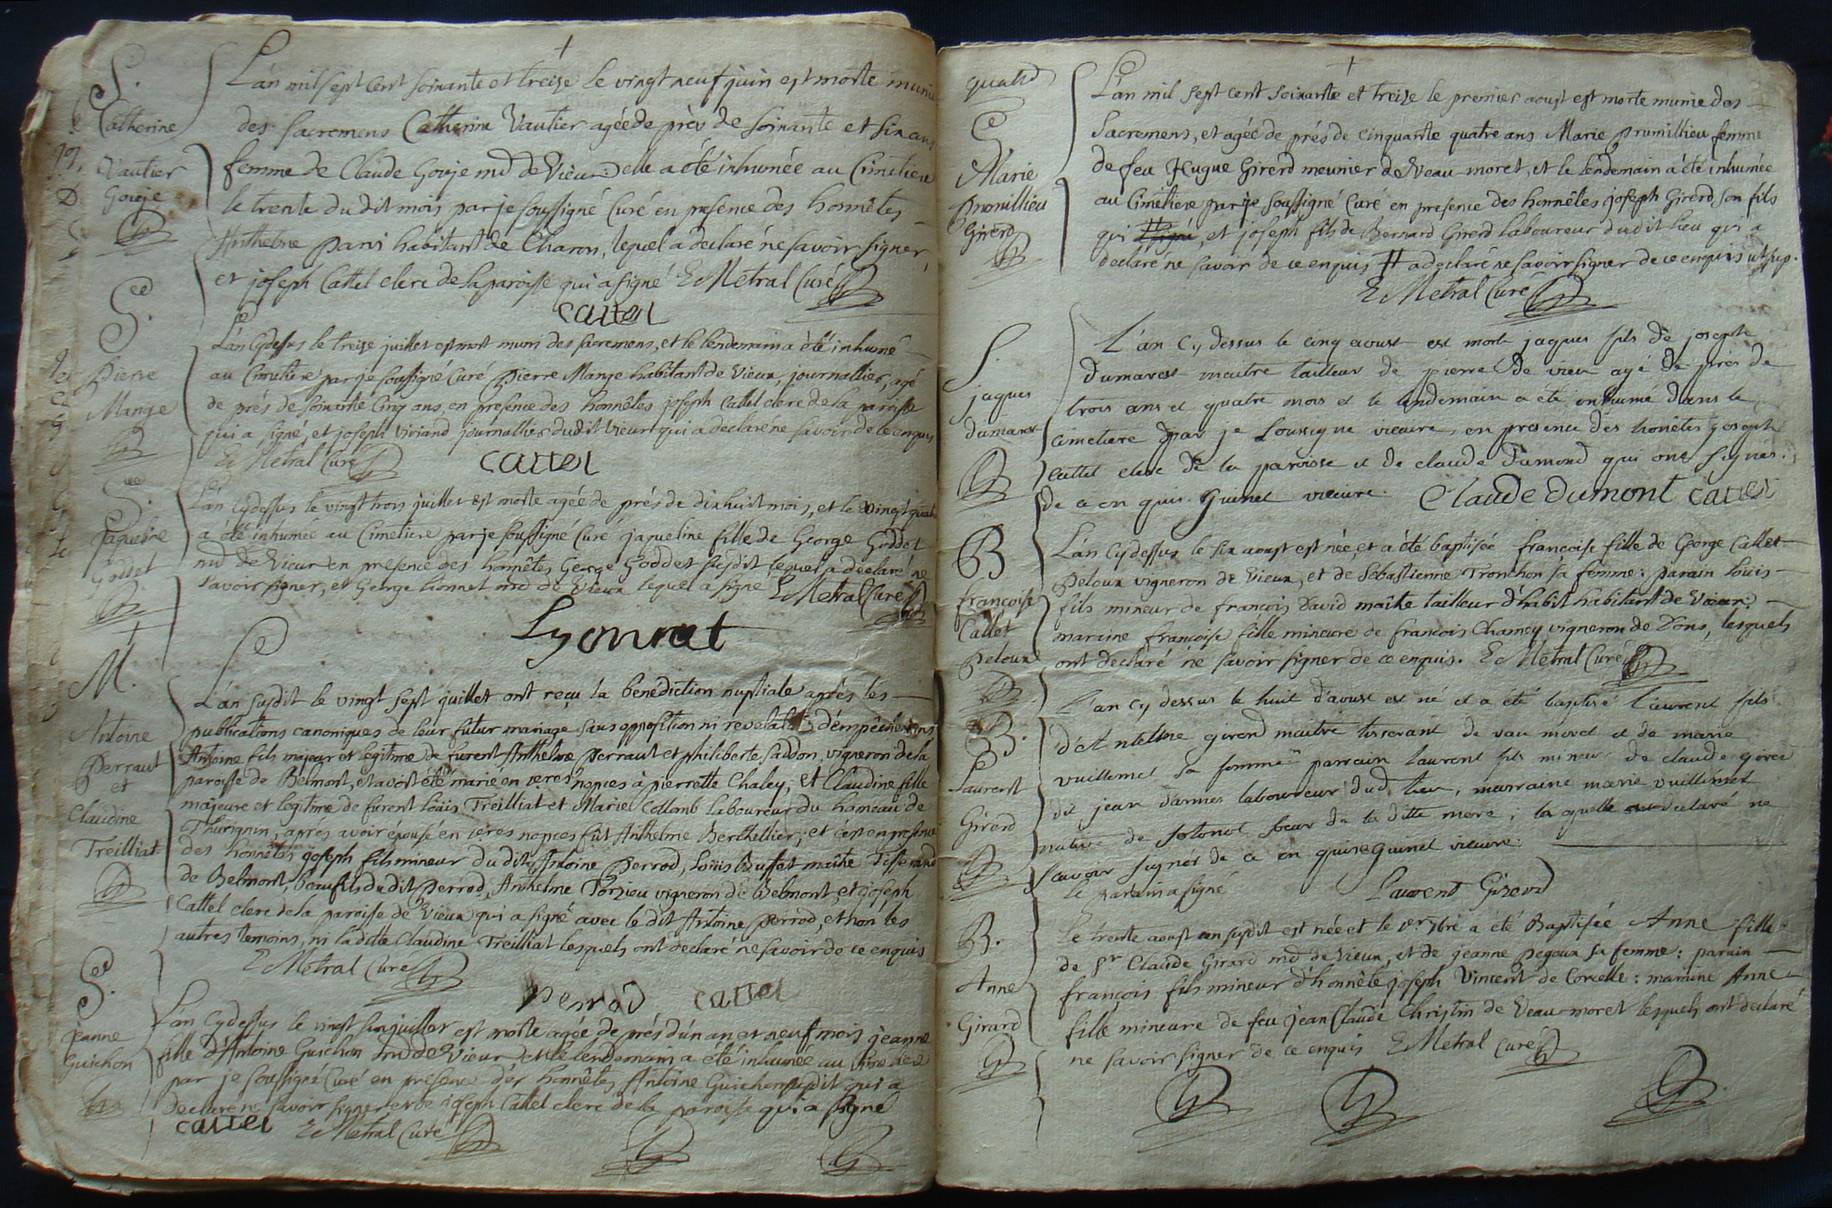 S.
Catherine
Vautier
Gouje
L'an mil sept cent soixante et treise le vingt neuf juin est morte munie
des sacremens Catherine Vautier agée de près de soixante et six ans
femme de Claude Gouje md de Vieu: elle a été inhumée au Cimetiere
le trente du dit mois par je soussigné Curé en presence des honnêtes
Anthelme habitant de Charon, lequel a declaré ne savoir signer,
et joseph Cattel clerc de la paroisse qui a signé E Metral Curé
cattel
S.re
Pierre
Mange
L'an cydessus le treise juillet est mort muni des sacremens, et le lendemain a été inhumé
au Cimetiere par je soussigné Curé Pierre Mange habitant de Vieux, journallier, agé
de près de soixante cinq ans, en presence des honnêtes joseph Cattel clerc de la paroisse
qui a signé, et joseph Viviand journallier dudit Vieu qui a declaré ne savoir de ce enquis
E Metral Curé
cattel
S.re
Jaqueline
Goddet
L'an cydessus le vingt trois juillet est morte agée de près de dixhuit mois, et le vingt quatre
a été inhumée au Cimetiere par je soussigné Curé jaqueline fille de George Goddet
md de Vieu en presence des honnêtes George Goddet susdit lequel a declaré ne
savoir signer, et George Lionnet md de Vieux lequel a signé E Metral Curé
Lyonnet
M.
Antoine
Perraut
et
Claudine
Treilliat
L'an susdit le vingt sept juillet ont reçu la benediction nuptiale après les
publications canoniques de leur futur mariage sans opposition ni revelation d'empêchement
Antoine fils majeur et legitime de furent Anthelme Perraut et philiberte Saddon, vigneron de la
paroisse de Belmont, et avoit été marié en 1eres nopces à pierrette Chaley, et Claudine fille
majeure et legitime de furent Loüis Treilliat et Marie Colland laboureur du hameau de
Thurignin, apres avoir épousé en 1eres nopces fût Anthelme Berthellier; et c'est en presence
des honnêtes joseph fils mineur du dit Antoine Perrod, Loüis Buffet maître Tisserand
de Belmont, beaufils du dit Perrod, Anthelme vigneron de Belmont, et joseph
Cattel clerc de la paroisse de Vieux qui a signé avec le dit Antoine Perrod, et non les
autres temoins, ni la ditte Claudine Treilliat lesquels ont declaré ne savoir de ce enquis
E Metral Curé
Perrod cattel
S.re
Jeanne
Guichon
L'an cydessus le vingt juillet est morte agée de près d'un an et neuf mois jeanne
fille d'Antoine Guichon md de Vieu et le lendemain a été inhumée au Cimetiere
par je soussigné Curé en presence des honnêtes Antoine Guichon susdit qui a
declaré ne savoir signer et de joseph Cattel clerc de la paroisse qui a signé
cattel E Metral Curé
Marie
Prumillieu
Girerd
L'an mil sept cent soixante et treise le premier aoust est morte munie des
Sacremens, et agée de prés de cinquante quatre ans Marie Prumillieu femme
de feu Hugue Girerd meunier de Veau moret, et le lendemain a été inhumée
au Cimetiere par je soussigné Curé en presence des honnêtes joseph Girerd son fils
qui, et joseph fils de Bernard Girerd laboureur dudit lieu qui a
declaré ne savoir de ce enquis # a declaré ne savoir signer de ce enquis ut sup.
E Metral Curé
S.
jaques
dumarest
L'an cy dessus le cinq aoust est mort jaques fils de joseph
dumarest maitre tailleur de pierre de vieu agé de près de
trois ans et quatre mois et le lendemain a été enhumé dans le
cimetiere par je soussigne vicaire, en presence des honêtes joseph
cattel clerc de la paroisse et de claude dumond qui ont signés.
de ce en quis. Guinet vicaire. Claude dumont cattel
B
françoise
Callet
Peloux
L'an cydessus le six aoust est née, et a été baptisée françoise fille de George Callet
Peloux vigneron de Vieux, et de Sebastienne Tronchon sa femme: parain loüis
fils mineur de françois David maître tailleur d'habit habitant de Vieux.
maraine françoise fille mineure de françois Charney vigneron de Dons, lesquels
ont declaré ne savoir signer de ce enquis. E Metral Curé
B.
Laurent
Girerd
L'an cy dessus le huit d'aoust est né et a été baptisé laurent fils
d'Antelme girerd maitre tisserant de vau moret et de marie
vuillemet sa femme parrain laurent fils mineur de claude girerd
dit jean darmes laboureur dud. lieu, marraine marie vuillemet
native de sotonot soeur de la ditte mere; la quelle declaré ne
savoir signer de ce en quise Guinet vicaire.
le parain a signé Laurent Girerd
B.
Anne
Girard
Le trente aoust an susdit est née et le 1er 7bre a été Baptisée Anne fille
de Sr Claude Girard md de Vieux, et de jeanne Pegoux sa femme: parain
françois fils mineur d'honnête joseph Vincent de Corcelle: maraine Anne
fille mineure de feu jean Claude Christin de Veau-moret lesquels ont declaré
ne savoir signer de ce enquis E Metral Curé